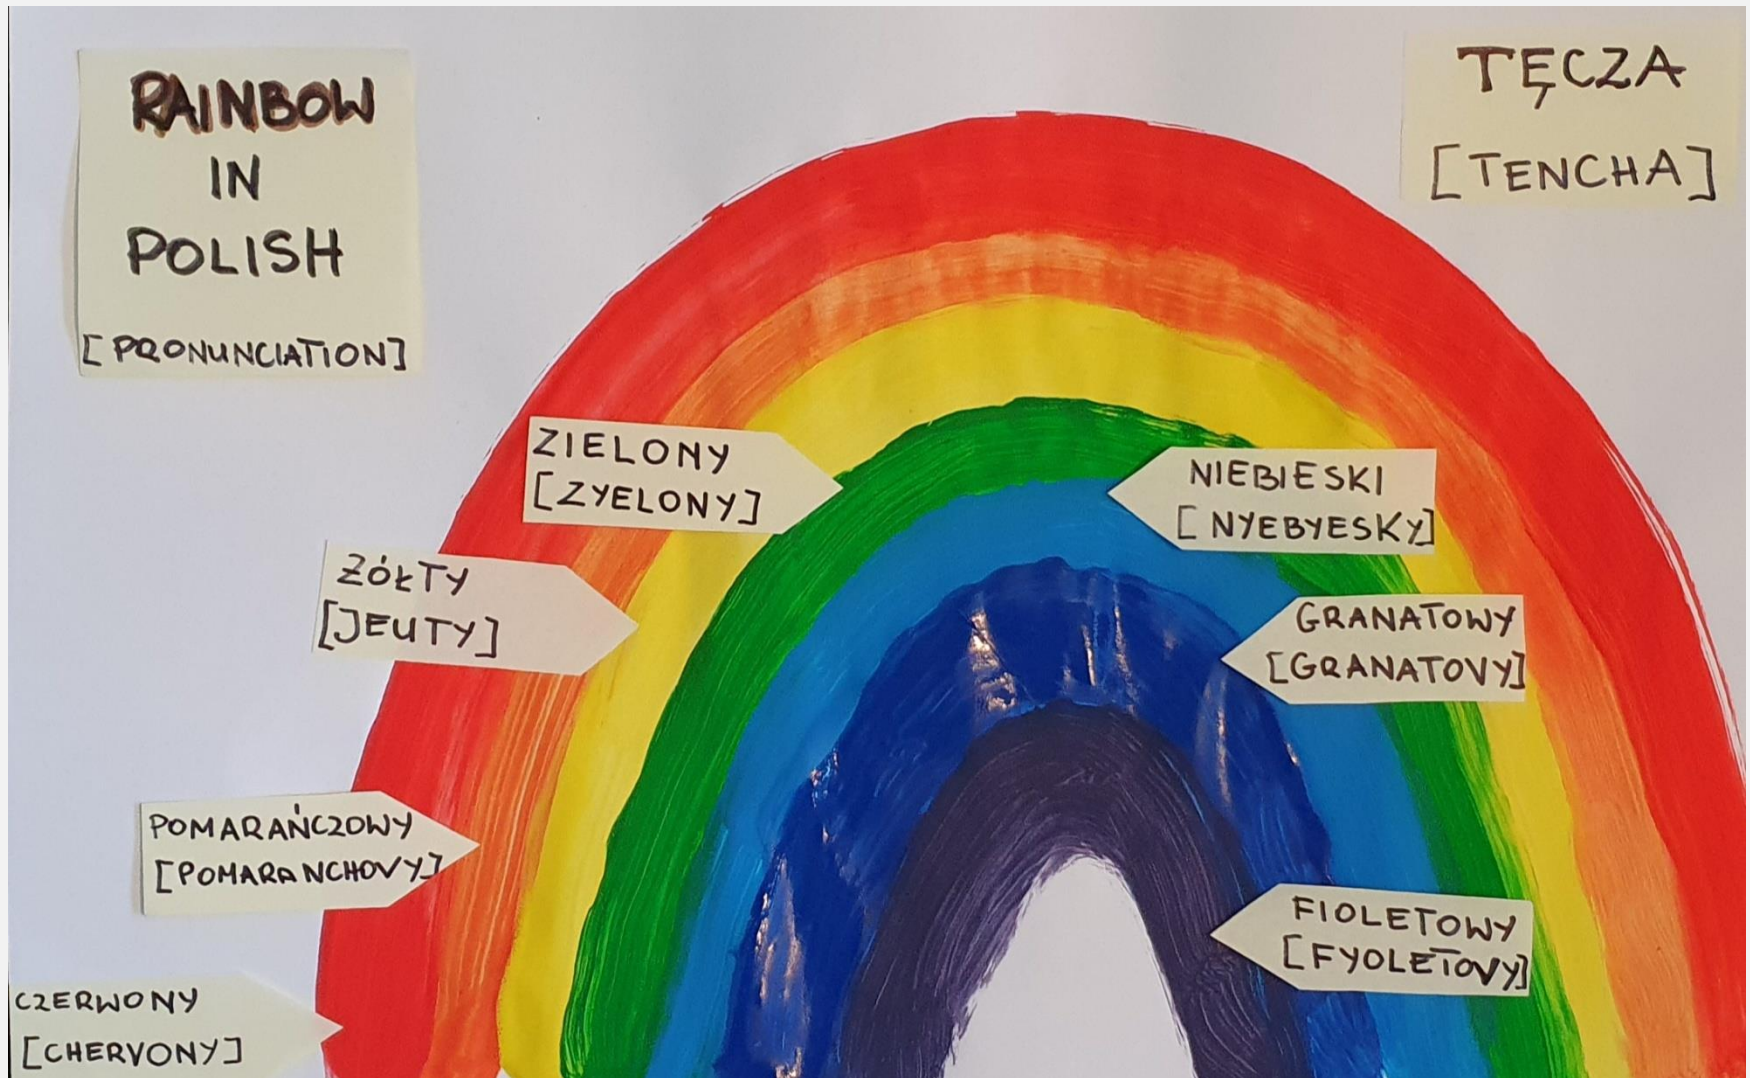 RAINBOW
IN
POLISH
[PRONUNCIATION]
TĘCZA
[TENCHA]
ZIELONY
[ZYELONY]
NIEBIESKI
[NYEBYESKY]
ŻÓŁTY
[JEUTY]
GRANATOWY
[GRANATOVY]
POMARAŃCZOWY
[POMARANCHOVY]
FIOLETOWY
[FYOLETOVY]
CZERWONY
[CHERVONY]